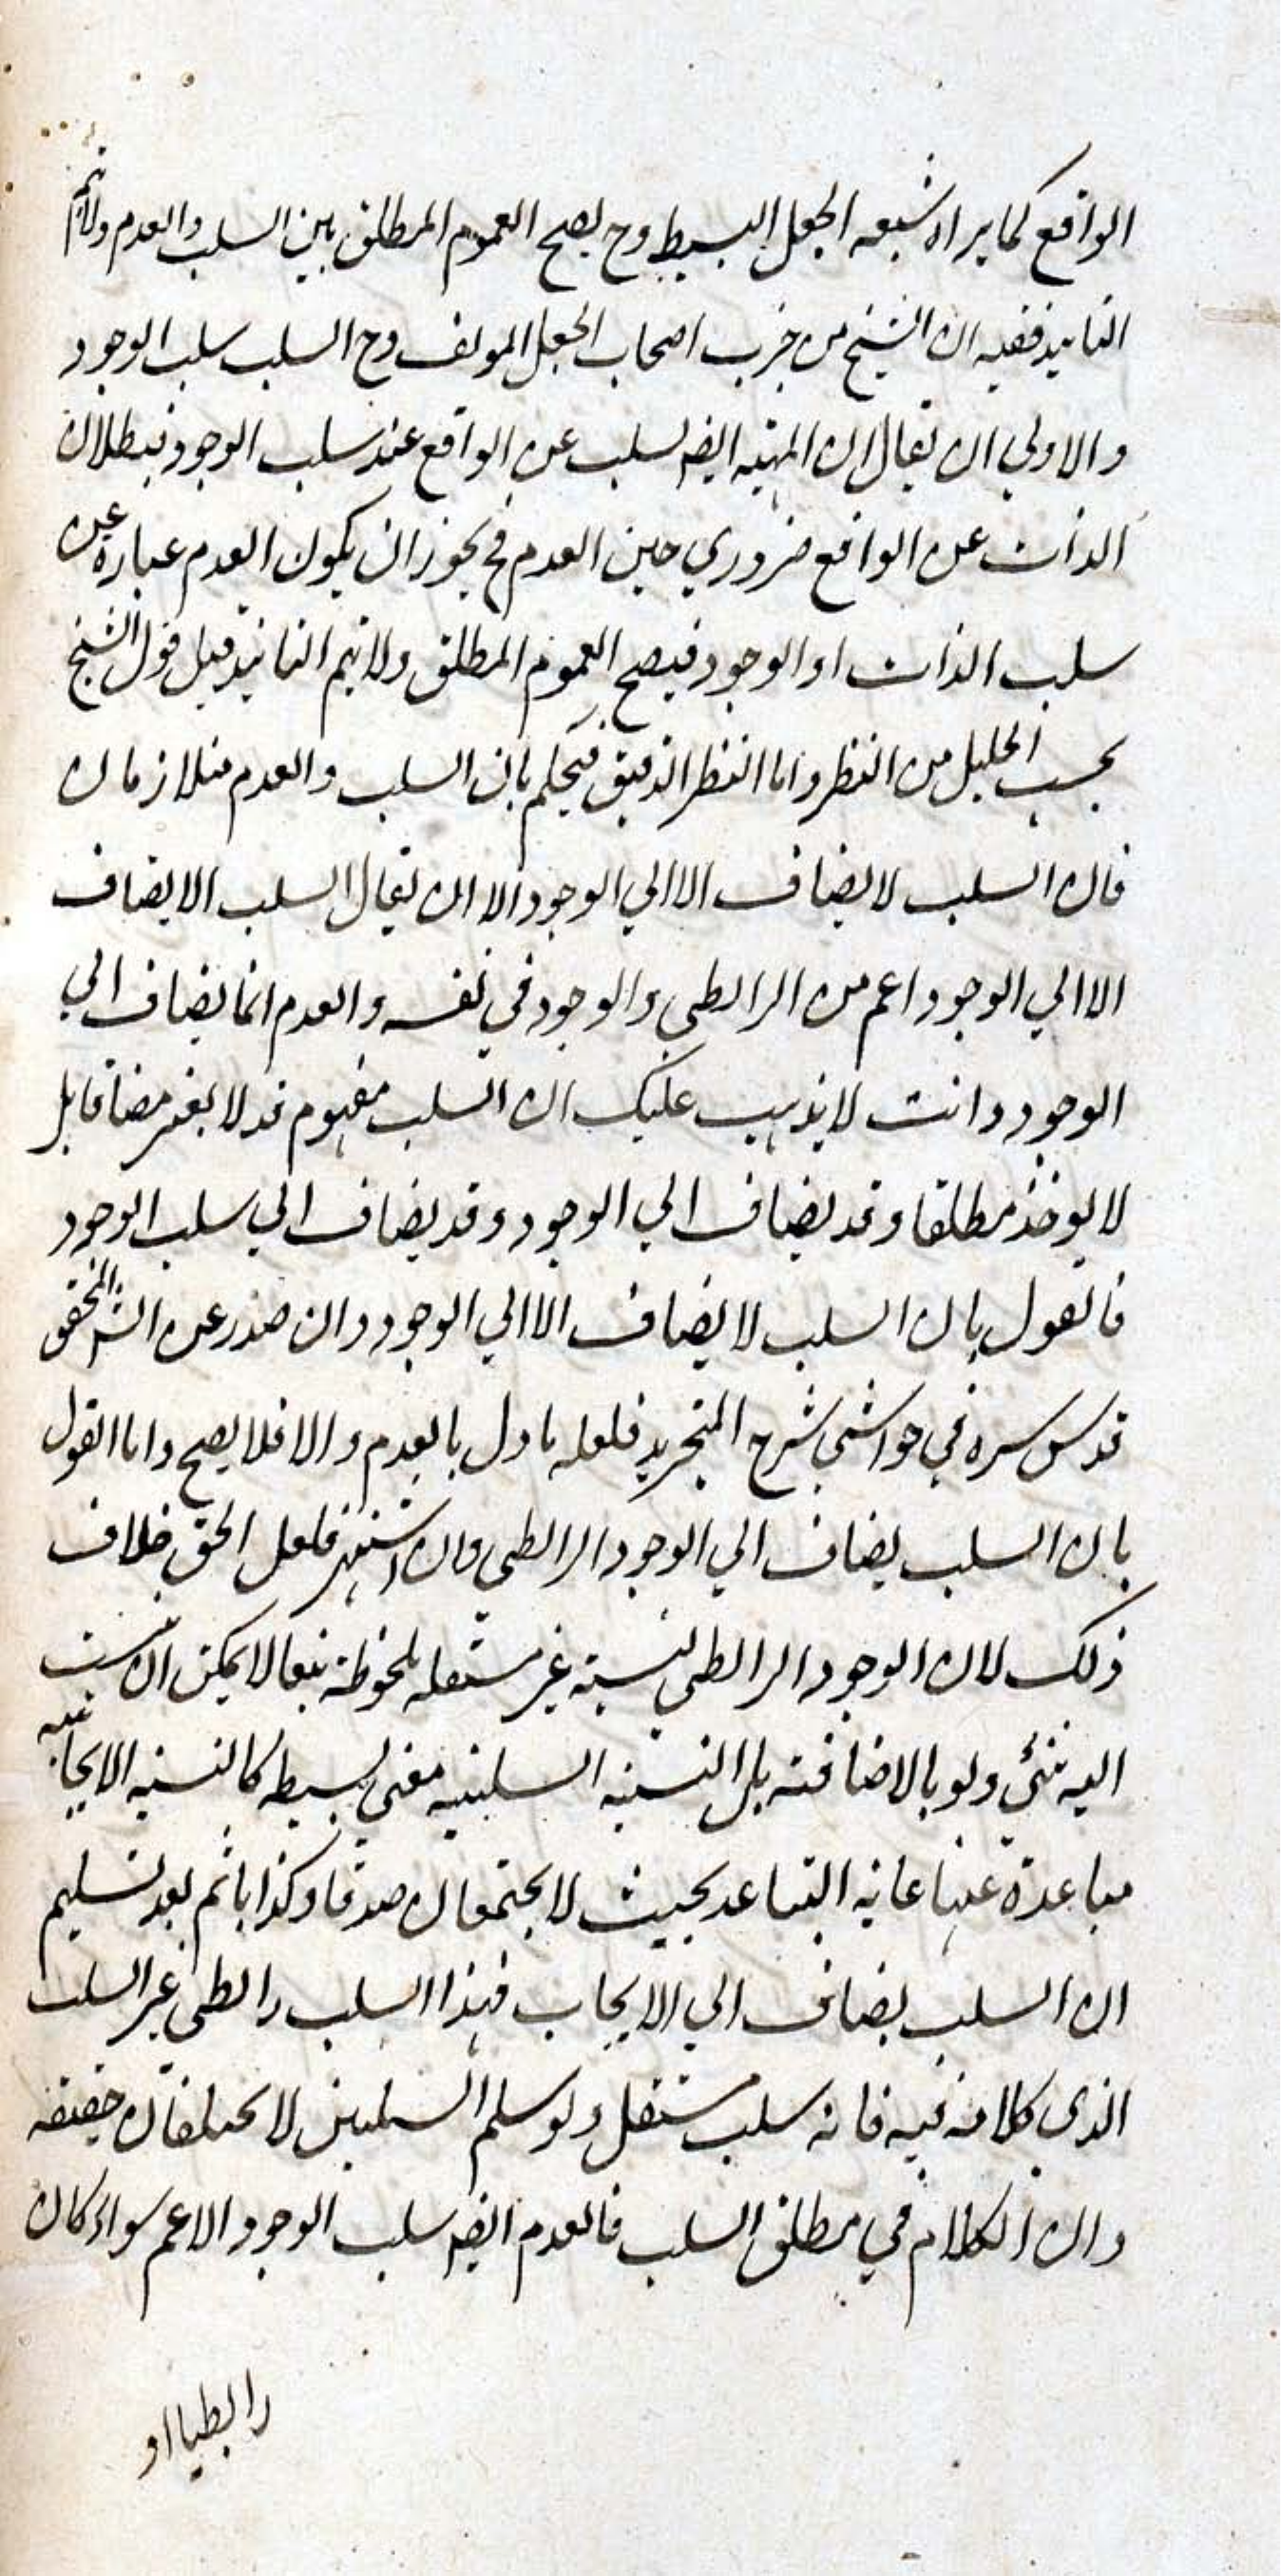 الواقع كما يراه شيعه الجعل البسيط وح يصح العموم المطلق بين السلب والعدم ولا يتم
التاييد ففيه ان الشيخ من حزب اصحاب الجعل المولف وح السلب سلب الوجود
والاولي ان يقال ان المهيه ايضه يسلب عن الواقع عند سلب الوجود فبطلان
الذات عن الواقع ضروري حين العدم فح يجوز ان يكون العدم عباره عن
سلب الذات او الوجود فيصح العموم المطلق ولا يتم التاييد قيل قول الشيخ
بحسب الجليل من النظر واما النظر الدقيق فيحكم بان السلب والعدم متلازمان
فان السلب لا يضاف الا الي الوجود الا ان يقال السلب الا يضاف
الا الي الوجود اعم من الرابطي والوجود في نفسه والعدم انما يضاف الي
الوجود وانت لا يذهب عليك ان السلب مفهوم قد لا يعتبر مضافا بل
لا يوخذ مطلقا وقد يضاف الي الوجود وقد يضاف الي سلب الوجود
فالقول بان السلب لا يضاف الا الي الوجود وان صدر عن الش المحقق
قدس سره في حواشي شرح التجريد فلعله ماول بالعدم والا فلا يصح واما القول
بان السلب يضاف الي الوجود الرابطي وان اشتهر فلعل الحق خلاف
ذلك لان الوجود الرابطي نسبة غير مستقله ملحوظة تبعا لا يمكن ان ينسب
اليه شئ ولو بالاضافة بل النسبه السلبيه معني بسيط كالنسبه الايجابيه
مباعدة عنها غايه التباعد بحيث لا يجتمعان صدقا وكذبا ثم بعد تسليم
ان السلب يضاف الي الايجاب فهذا السلب رابطي غير السلب
الذي كلامه فيه فانه سلب مستقل ولو سلم السلبين لا يختلفان حقيقه
وان الكلام في مطلق السلب فالعدم ايضه سلب الوجود الاعم سواء كان
رابطيا او